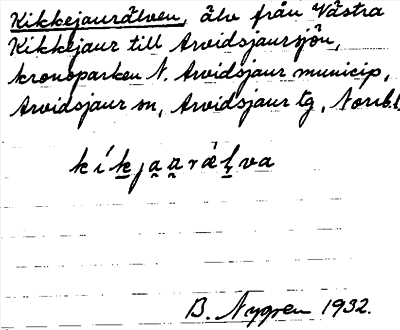 Kikkejaurälven, älv från Västra
Kikkejaur till Arvidsjaursjön,
kronoparken N. Arvidsjaur municip,
Arvidsjaur sn, Arvidsjaur tg, Norrb.l
kíkja̤a̤räl̤va
B. Nygren 1932.